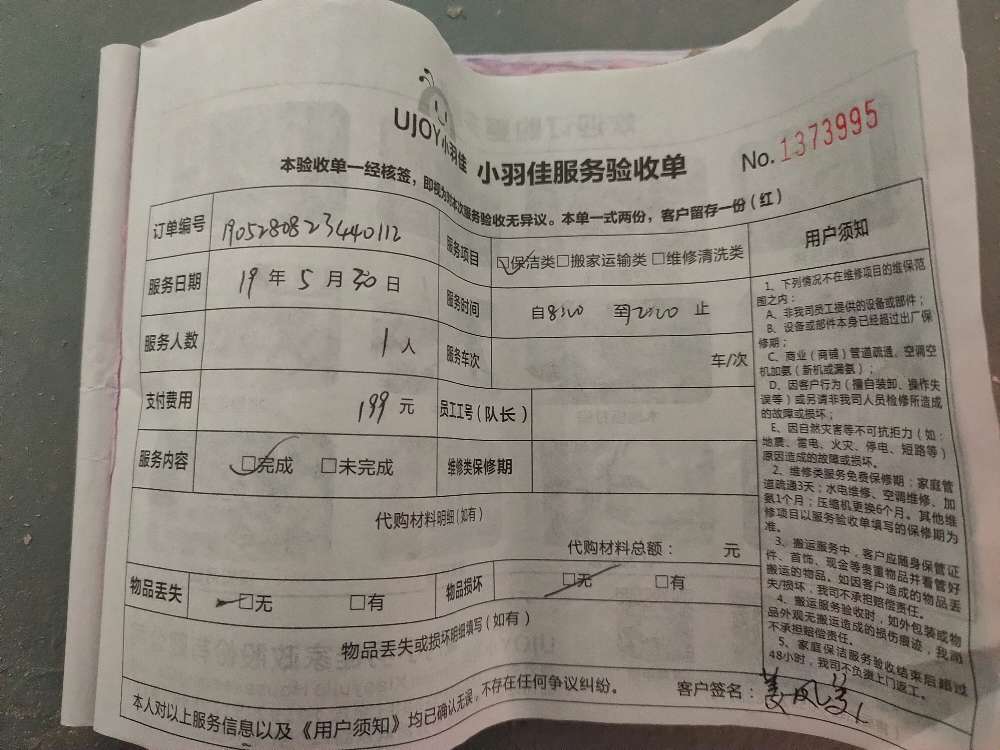 UJOY小羽佳
小羽佳服务验收单
No. 1373995
本验收单一经核签，即视为对本次服务验收无异议。本单一式两份，客户留存一份（红）
订单编号 1905280823440112
服务项目 □保洁类□搬家运输类 □维修清洗类
服务日期 19 年 5 月 30 日
服务时间 自8:00 至12:00 止
服务人数 1 人
服务车次 车/次
支付费用 199 元
员工工号（队长）
服务内容 □完成 □未完成
维修类保修期
代购材料明细（如有）
代购材料总额： 元
物品丢失 □无 □有
物品损坏 □无 □有
物品丢失或损坏明细填写（如有）
本人对以上服务信息以及《用户须知》均已确认无误，不存在任何争议纠纷。
客户签名：
用户须知
1、下列情况不在维修项目的维保范
围之内：
A、非我司员工提供的设备或部件；
B、设备或部件本身已经超过出厂保
修期；
C、商业（商铺）管道疏通、空调空
机加氨（新机或漏氨）；
D、因客户行为（擅自装卸、操作失
误等）或另请非我司人员检修所造成
的故障或损坏；
E、因自然灾害等不可抗拒力（如：
地震、雷电、火灾、停电、短路等）
原因造成的故障或损坏。
2、维修类服务免费保修期：家庭管
道疏通3天；水电维修、空调维修、加
氨1个月；压缩机更换6个月。其他维
修项目以服务验收单填写的保修期为
准。
3、搬运服务中，客户应随身保管证
件、首饰、现金等贵重物品并看管好
搬运的物品。如因客户造成的物品丢
失/损坏，我司不承担赔偿责任。
4、搬运服务验收时，如外包装或物
品外观无搬运造成的损伤痕迹，我司
不承担赔偿责任。
5、家庭保洁服务验收结束后超过
48小时，我司不负责上门返工。